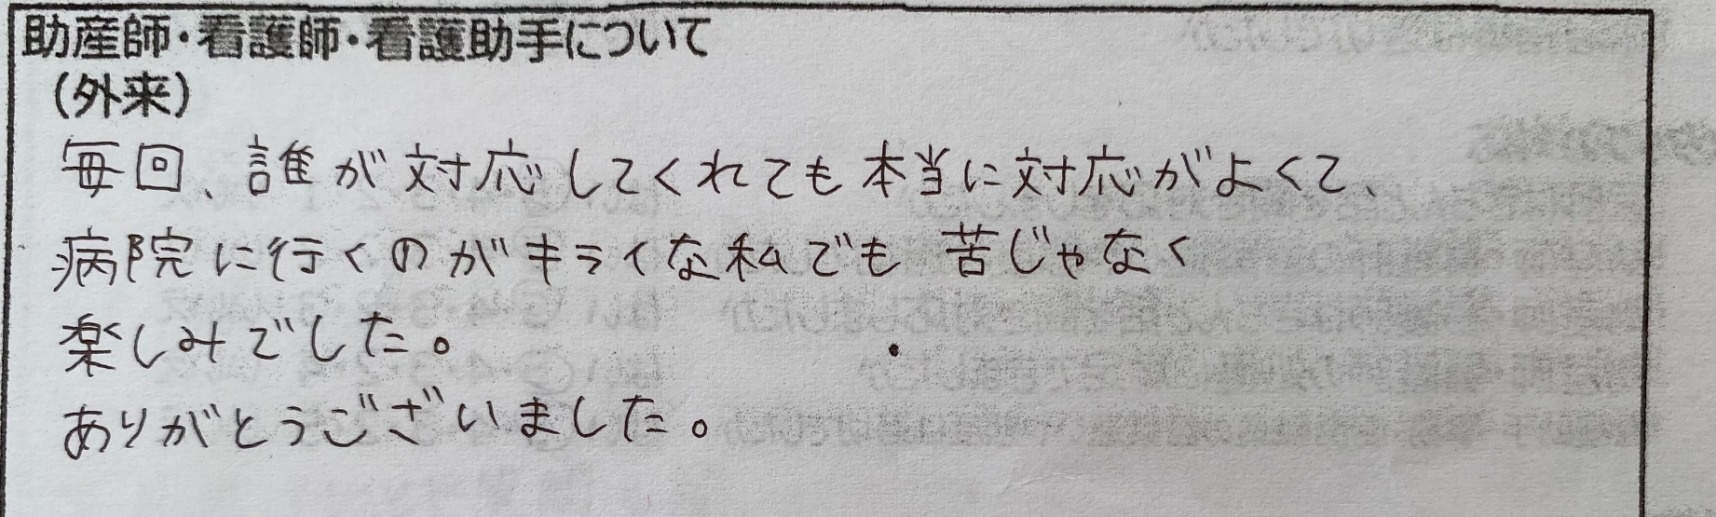 助産師・看護師・看護助手について
(外来)
毎回、誰が対応してくれても本当に対応がよくて、
病院に行くのがキライな私でも苦じゃなく
楽しみでした。
ありがとうございました。